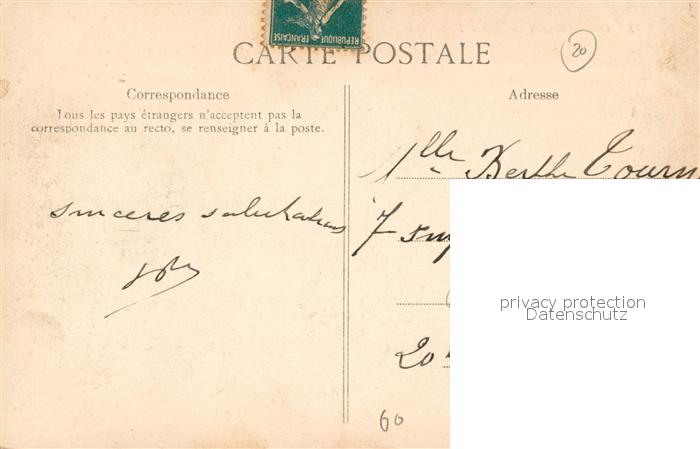 REPUBLIQUE FRANÇAISE
CARTE POSTALE
20
Correspondance
Tous les pays étrangers n'acceptent pas la
correspondance au recto, se renseigner à la poste.
sincères salutations
Adresse
Mlle Berthe Tourn
7
20
60
privacy protection
Datenschutz